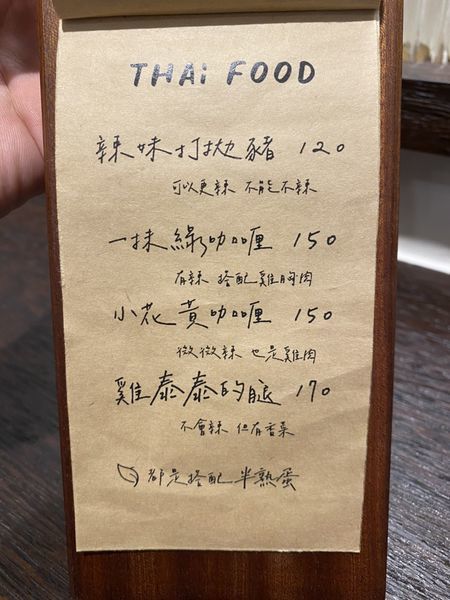 THAi FOOD
辣妹打拋豬 120
可以更辣 不能不辣
一抹綠咖喱 150
有辣 搭配雞胸肉
小花黃咖喱 150
微微辣 也是雞肉
雞泰泰的腿 170
不會辣 但有香菜
都是搭配半熟蛋